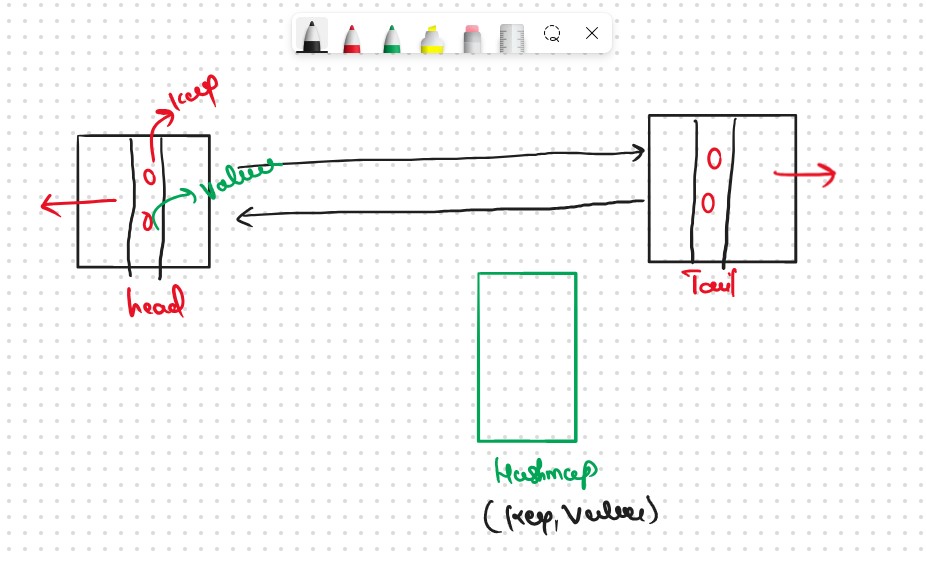 key
0
value
0
head
0
0
Tail
Hashmap
(key, value)